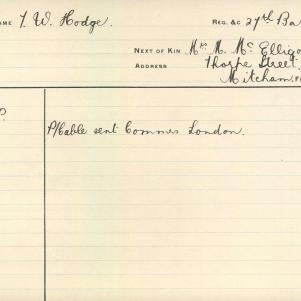 NAME T. W. Hodge. REG. &c 27th Ba
NEXT OF KIN Mrs M. McElligo
ADDRESS Thorpe Street
Mitcham
P/Cable sent Commrs London.